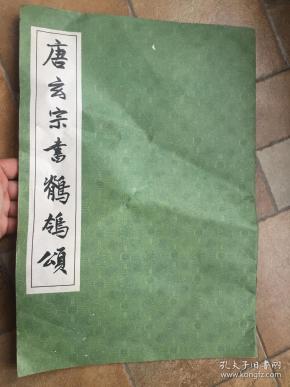 唐玄宗書鶺鴒頌
孔夫子旧书网